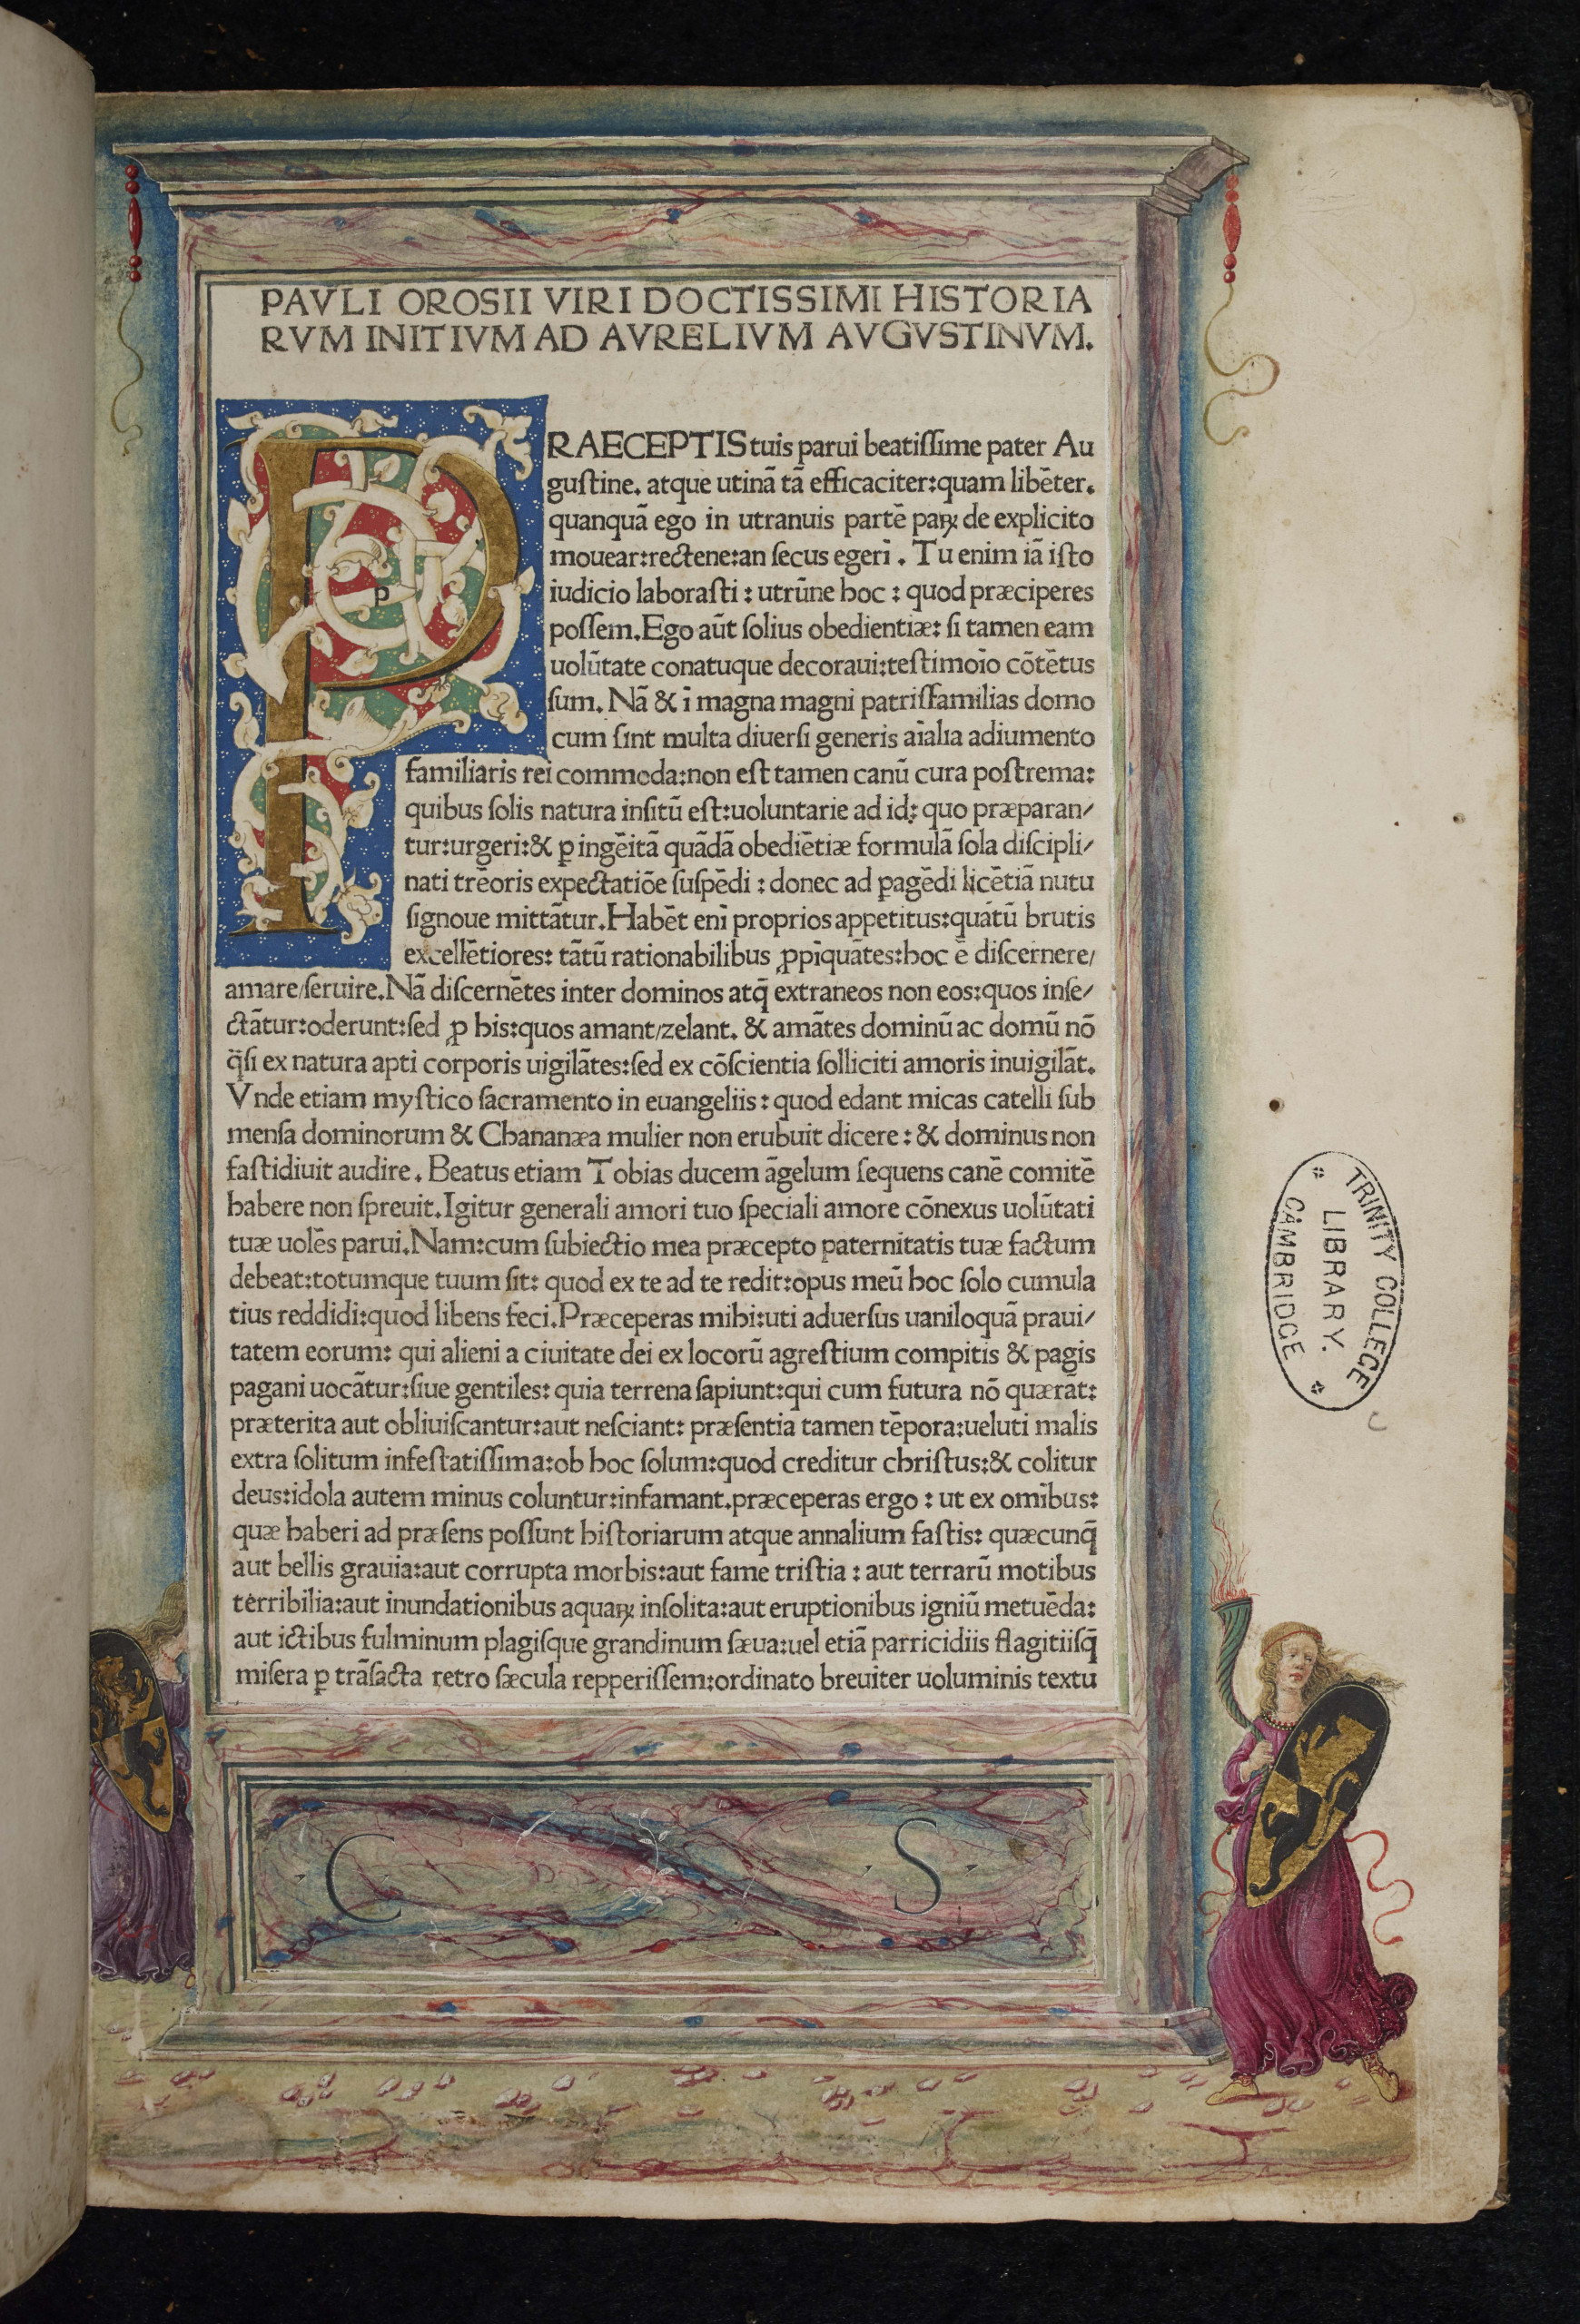 PAVLI OROSII VIRI DOCTISSIMI HISTORIA
RVM INITIVM AD AVRELIVM AVGVSTINVM.
P
p
RAECEPTIS tuis parui beatiſſime pater Au
guſtine. atque utinã tã efficaciter:quam libẽter.
quanquã ego in utranuis partẽ paꝝ de explicito
mouear:rectene:an ſecus egerĩ. Tu enim iã iſto
iudicio laboraſti : utrũne hoc : quod præciperes
poſſem. Ego aũt ſolius obedientiæ: ſi tamen eam
uolũtate conatuque decoraui:teſtimoĩo cõtẽtus
ſum. Nã & ĩ magna magni patriſfamilias domo
cum ſint multa diuerſi generis aĩalia adiumento
familiaris rei commoda:non eſt tamen canũ cura poſtrema:
quibus ſolis natura inſitũ eſt:uoluntarie ad id: quo præparan/
tur:urgeri:& ꝑ ingẽitã quãdã obediẽtiæ formulã ſola diſcipli/
nati trẽoris expectatiõe ſuſpẽdi : donec ad ꝑagẽdi licẽtiã nutu
ſignoue mittãtur. Habẽt enĩ proprios appetitus:quãtũ brutis
excellẽtiores: tãtũ rationabilibus ꝓpĩquãtes:hoc ẽ diſcernere/
amare/ſeruire. Nã diſcernẽtes inter dominos atq̃ extraneos non eos:quos inſe/
ctãtur:oderunt:ſed ꝓ his:quos amant/zelant. & amãtes dominũ ac domũ nõ
q̃ſi ex natura apti corporis uigilãtes:ſed ex cõſcientia ſolliciti amoris inuigilãt.
Vnde etiam myſtico ſacramento in euangeliis : quod edant micas catelli ſub
menſa dominorum & Chananæa mulier non erubuit dicere : & dominus non
faſtidiuit audire. Beatus etiam Tobias ducem ãgelum ſequens canẽ comitẽ
habere non ſpreuit. Igitur generali amori tuo ſpeciali amore cõnexus uolũtati
tuæ uolẽs parui. Nam:cum ſubiectio mea præcepto paternitatis tuæ factum
debeat:totumque tuum ſit: quod ex te ad te redit:opus meũ hoc ſolo cumula
tius reddidi:quod libens feci. Præceperas mihi:uti aduerſus uaniloquã praui/
tatem eorum: qui alieni a ciuitate dei ex locorũ agreſtium compitis & pagis
pagani uocãtur:ſiue gentiles: quia terrena ſapiunt:qui cum futura nõ quærãt:
præterita aut obliuiſcantur:aut neſciant: præſentia tamen tẽpora:ueluti malis
extra ſolitum infeſtatiſſima:ob hoc ſolum:quod creditur chriſtus:& colitur
deus:idola autem minus coluntur:infamant. præceperas ergo : ut ex omĩbus:
quæ haberi ad præſens poſſunt hiſtoriarum atque annalium faſtis: quæcunq̃
aut bellis grauia:aut corrupta morbis:aut fame triſtia : aut terrarũ motibus
terribilia:aut inundationibus aquaꝝ inſolita:aut eruptionibus igniũ metuẽda:
aut ictibus fulminum plagiſque grandinum ſæua:uel etiã parricidiis flagitiiſq̃
miſera ꝑ trãſacta retro ſæcula repperiſſem:ordinato breuiter uoluminis textu
C S
TRINITY COLLEGE
LIBRARY.
CAMBRIDGE